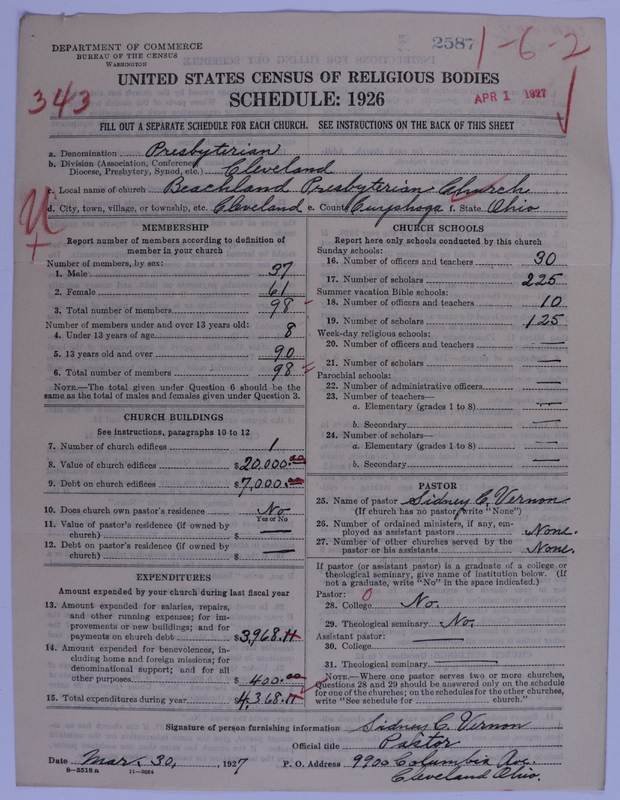 DEPARTMENT OF COMMERCE
BUREAU OF THE CENSUS
WASHINGTON
2587
1-6-2
UNITED STATES CENSUS OF RELIGIOUS BODIES
343
SCHEDULE: 1926
APR 1 1927
FILL OUT A SEPARATE SCHEDULE FOR EACH CHURCH. SEE INSTRUCTIONS ON THE BACK OF THIS SHEET
a. Denomination Presbyterian
b. Division (Association, Conference, Diocese, Presbytery, Synod, etc.) Cleveland
c. Local name of church Beachland Presbyterian Church
d. City, town, village, or township, etc. Cleveland e. County Cuyahoga f. State Ohio
MEMBERSHIP
Report number of members according to definition of
member in your church
Number of members, by sex:
1. Male 37
2. Female 61
3. Total number of members 98
Number of members under and over 13 years old:
4. Under 13 years of age 8
5. 13 years old and over 90
6. Total number of members 98
NOTE.—The total given under Question 6 should be the
same as the total of males and females given under Question 3.
CHURCH BUILDINGS
See instructions, paragraphs 10 to 12
7. Number of church edifices 1
8. Value of church edifices $20,000.00
9. Debt on church edifices $7,000.00
10. Does church own pastor's residence No
Yes or No
11. Value of pastor's residence (if owned by
church) $ —
12. Debt on pastor's residence (if owned by
church) $ —
EXPENDITURES
Amount expended by your church during last fiscal year
13. Amount expended for salaries, repairs,
and other running expenses; for im-
provements or new buildings; and for
payments on church debt $3,968.11
14. Amount expended for benevolences, in-
cluding home and foreign missions; for
denominational support; and for all
other purposes $400.00
15. Total expenditures during year $4,368.11
CHURCH SCHOOLS
Report here only schools conducted by this church
Sunday schools:
16. Number of officers and teachers 30
17. Number of scholars 225
Summer vacation Bible schools:
18. Number of officers and teachers 10
19. Number of scholars 125
Week-day religious schools:
20. Number of officers and teachers —
21. Number of scholars —
Parochial schools:
22. Number of administrative officers —
23. Number of teachers—
a. Elementary (grades 1 to 8) —
b. Secondary —
24. Number of scholars—
a. Elementary (grades 1 to 8) —
b. Secondary —
PASTOR
25. Name of pastor Sidney C. Vernon
(If church has no pastor, write "None")
26. Number of ordained ministers, if any, em-
ployed as assistant pastors None.
27. Number of other churches served by the
pastor or his assistants None.
If pastor (or assistant pastor) is a graduate of a college or
theological seminary, give name of institution below. (If
not a graduate, write "No" in the space indicated.)
Pastor: 0
28. College No.
29. Theological seminary No.
Assistant pastor:
30. College —
31. Theological seminary —
NOTE.—Where one pastor serves two or more churches,
Questions 28 and 29 should be answered only on the schedule
for one of the churches; on the schedules for the other churches,
write "See schedule for church."
Signature of person furnishing information Sidney C. Vernon
Official title Pastor
Date Mar. 30, 1927 P. O. Address 9900 Columbia Ave.
Cleveland Ohio.
8—5518a 11—9054